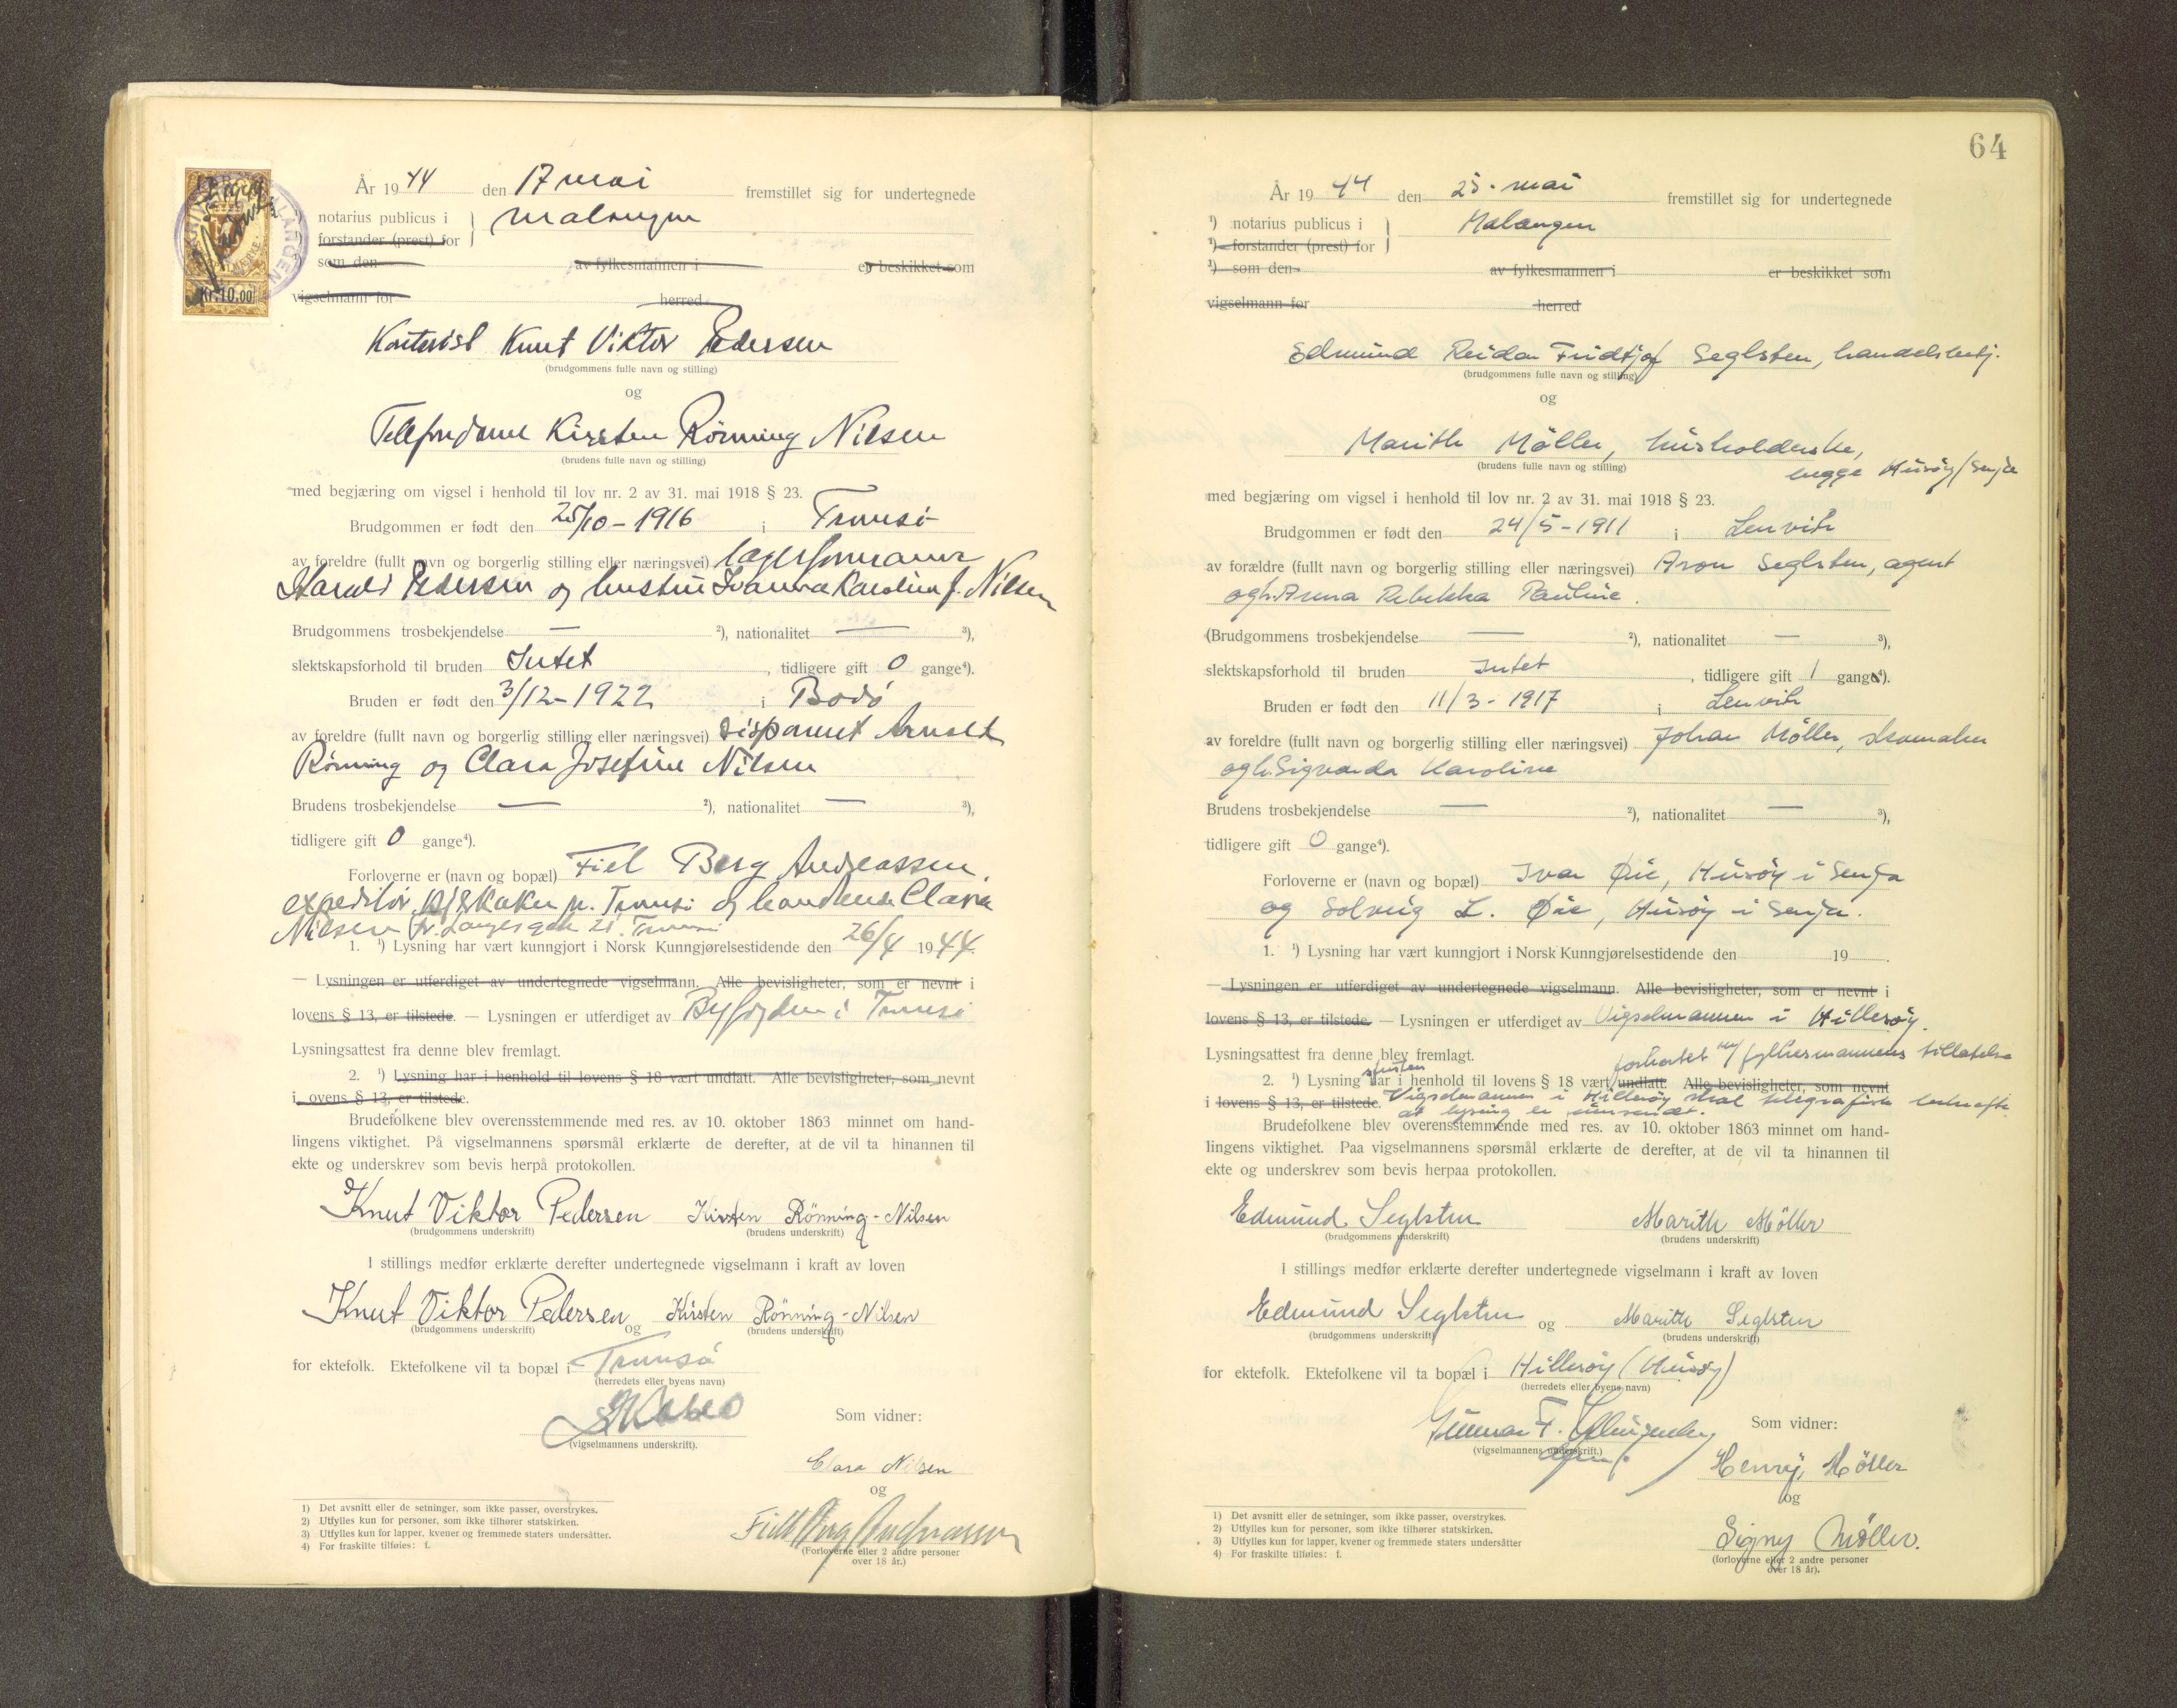 År 1944 den 17 mai fremstillet sig for undertegnede
notarius publicus i Malangen
forstander (prest) for
som den av fylkesmannen i er beskikket som
vigselmann for herred
Kr. 10.00
Kontorist Knut Viktor Pedersen
(brudgommens fulle navn og stilling)
og
Telefondame Kirsten Rönning Nilsen
(brudens fulle navn og stilling)
med begjæring om vigsel i henhold til lov nr. 2 av 31. mai 1918 § 23.
Brudgommen er født den 25/10-1916 i Tromsö
av foreldre (fullt navn og borgerlig stilling eller næringsvei) lagerformann
Harald Pedersen og hustru Ivanna Karoline f. Nilsen
Brudgommens trosbekjendelse — ²), nationalitet — ³),
slektskapsforhold til bruden Intet, tidligere gift 0 gange⁴).
Bruden er født den 3/12-1922 i Bodö
av foreldre (fullt navn og borgerlig stilling eller næringsvei) disponent Arnold
Rönning og Clara Josefine Nilsen
Brudens trosbekjendelse — ²), nationalitet — ³),
tidligere gift 0 gange⁴).
Forloverne er (navn og bopæl) Fiel Berg Andreassen,
expeditör, Tromsö og Clara
Nilsen Fr. Langesgate 21. Tromsö
1. ¹) Lysning har vært kunngjort i Norsk Kunngjørelsestidende den 26/4 1944.
— Lysningen er utferdiget av undertegnede vigselmann. Alle bevisligheter, som er nevnt i
lovens § 13, er tilstede. — Lysningen er utferdiget av Byfogden i Tromsö
Lysningsattest fra denne blev fremlagt.
2. ¹) Lysning har i henhold til lovens § 18 vært undlatt. Alle bevisligheter, som nevnt
i lovens § 13, er tilstede.
Brudefolkene blev overensstemmende med res. av 10. oktober 1863 minnet om hand-
lingens viktighet. På vigselmannens spørsmål erklærte de derefter, at de vil ta hinannen til
ekte og underskrev som bevis herpå protokollen.
Knut Viktor Pedersen Kirsten Rönning-Nilsen
(brudgommens underskrift) (brudens underskrift)
I stillings medfør erklærte derefter undertegnede vigselmann i kraft av loven
Knut Viktor Pedersen og Kirsten Rönning-Nilsen
(brudgommens underskrift) (brudens underskrift)
for ektefolk. Ektefolkene vil ta bopæl i Tromsö
(herredets eller byens navn)
Som vidner:
(vigselmannens underskrift).
Clara Nilsen
og
Fiel Berg Andreassen
(Forloverne eller 2 andre personer
over 18 år.)
1) Det avsnitt eller de setninger, som ikke passer, overstrykes.
2) Utfylles kun for personer, som ikke tilhører statskirken.
3) Utfylles kun for lapper, kvener og fremmede staters undersåtter.
4) For fraskilte tilføies: f.
64
År 1944 den 25. mai fremstillet sig for undertegnede
¹) notarius publicus i Malangen
¹) forstander (prest) for
¹) som den av fylkesmannen i er beskikket som
vigselmann for herred
Edmund Reidar Fridtjof Seglsten, handelsbetj.
(brudgommens fulle navn og stilling)
og
Marith Möller, husholderske,
(brudens fulle navn og stilling) begge Husöy/Senja
med begjæring om vigsel i henhold til lov nr. 2 av 31. mai 1918 § 23.
Brudgommen er født den 24/5-1911 i Lenvik
av forældre (fullt navn og borgerlig stilling eller næringsvei) Aron Seglsten, agent
og h. Anna Rebekka Pauline.
(Brudgommens trosbekjendelse — ²), nationalitet — ³),
slektskapsforhold til bruden Intet, tidligere gift 1 gang⁴).
Bruden er født den 11/3-1917 i Lenvik
av foreldre (fullt navn og borgerlig stilling eller næringsvei) Johan Möller, skomaker
og h. Sigvarda Karoline
Brudens trosbekjendelse — ²), nationalitet — ³),
tidligere gift 0 gange⁴).
Forloverne er (navn og bopæl) Ivar Øie, Husöy i Senja
og Solveig L. Øie, Husöy i Senja.
1. ¹) Lysning har vært kunngjort i Norsk Kunngjørelsestidende den 19 .
— Lysningen er utferdiget av undertegnede vigselmann. Alle bevisligheter, som er nevnt i
lovens § 13, er tilstede. — Lysningen er utferdiget av Vigselmannen i Hillesöy.
Lysningsattest fra denne blev fremlagt. forkortet m/fylkesmannens tillatelse
2. ¹) Lysning har i henhold til lovens § 18 vært undlatt. Alle bevisligheter, som nevnt
i lovens § 13, er tilstede. Vigselmannen i Hillesöy skal telegrafisk bekrefte
at lysning er
Brudefolkene blev overensstemmende med res. av 10. oktober 1863 minnet om hand-
lingens viktighet. Paa vigselmannens spørsmål erklærte de derefter, at de vil ta hinannen til
ekte og underskrev som bevis herpaa protokollen.
Edmund Seglsten Marith Möller
(brudgommens underskrift) (brudens underskrift)
I stillings medfør erklærte derefter undertegnede vigselmann i kraft av loven
Edmund Seglsten og Marith Seglsten
(brudgommens underskrift) (brudens underskrift)
for ektefolk. Ektefolkene vil ta bopæl i Hillesöy (Husöy)
(herredets eller byens navn)
Gunnar F. Som vidner:
(vigselmannens underskrift.)
Henry Möller
og
Signy Möller.
(forloverne eller 2 andre personer
over 18 år).
1) Det avsnitt eller de setninger, som ikke passer, overstrykes.
2) Utfylles kun for personer, som ikke tilhører statskirken.
3) Utfylles kun for lapper, kvener og fremmede staters undersåtter
4) For fraskilte tilføies: f.